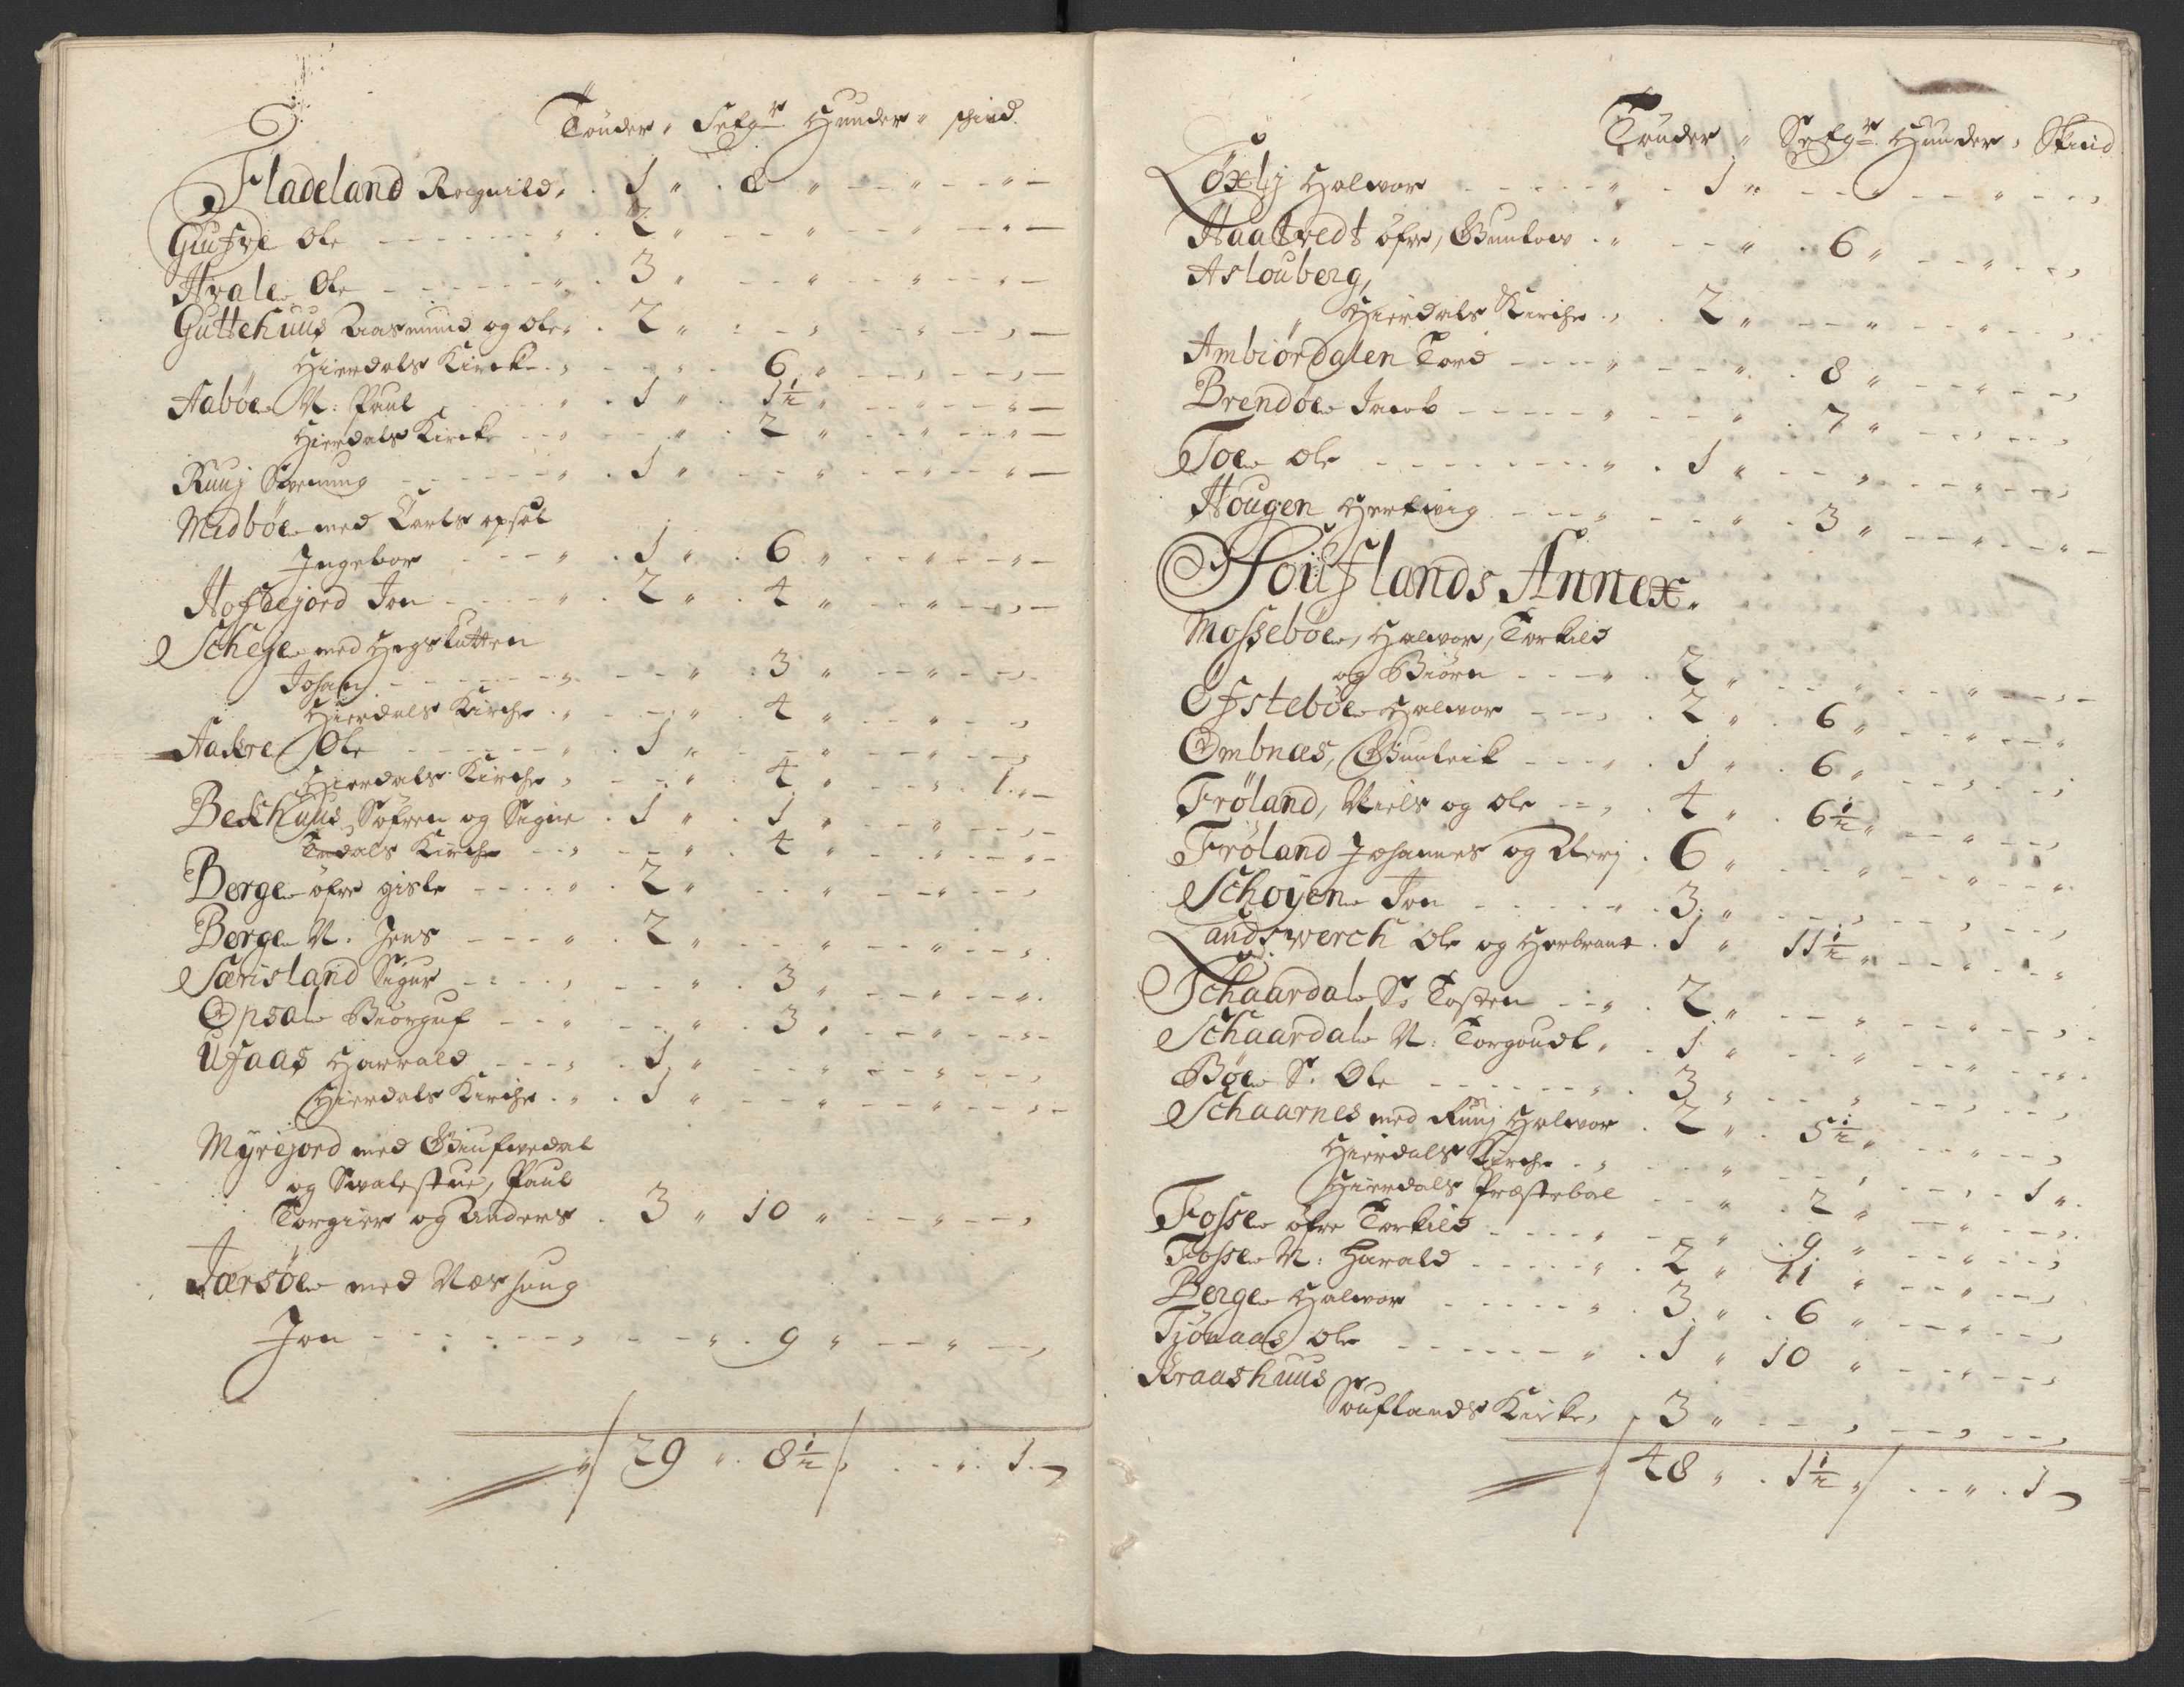 Tönder " Setg^r Hunder " schind
Fladeland Rognild " . 1 " . 8 " — — " — — " —
Giufve Ole — — — " . 2 " — — " — — " — — " —
Hvale Ole — — — " . 3 " — — " — — " — — " —
Guttehuus Aasmund og Ole " . 2 " — — " — — " — — " —
Hierdals Kircke . " — — " . 6 " — — " — — " —
Aabøe N: Paul — — " . 1 " . 1½ " — — " — — " —
Hierdals Kircke — — " — — " . 2 " — — " — — " —
Ruuj Svenung — — — " . 1 " — — " — — " — — " —
Midbøe med Carls opsal
Ingebor — — — " . 1 " . 6 " — — " — — " —
Hofdejord Jon — — — " . 2 " . 4 " — — " — — " —
Scheje med Hegskatten
Johan — — — — " — — " . 3 " — — " — — " —
Hierdals Kirche . " — — " . 4 " — — " — — "
Aakre Ole — — — — " . 1 " — — " — — " — — "
Hierdals Kirche " — — " . 4 " — — " . 1 " —
Beckhuus Søfren og Signe . 1 " . 1 " — — " — — " —
Tudals Kirche — — " — — " . 4 " — — " — — " —
Berge öfre Gisle — — — " . 2 " — — " — — " — — "
Berge N. Jens — — — " . 2 " — — " — — " — — "
Særisland Sigur — — — " — — " . 3 " — — " — — "
Opsal Biorguf — — " — — " . 3 " — — " — — " —
Ufaas Harrald — — — " . 1 " — — " — — " — — "
Hierdals Kirche . " . 1 " — — " — — " — — " —
Myrejord med Giufvedal
og Svalestue, Paul
Torgier og Anders . 3 " 10 " — — " — — "
Jærsøe med Næs
Jon — — — — " — — " . 9 " — — " — — "
29 " . 8½ " . . " . 1 . —
Tönder " Setg^r Hunder " Skind
Løxlj Halvor — — — " . 1 " — — " — — " — — "
Haatvedt öfre, Gunlow . " — — " . 6 " — — " — — "
Aslouberg,
Hierdals Kirche . " . 2 " — — " — — " — — "
Ambiørdalen Tord — — — " — — " . 8 " — — " — — "
Brendøe Jacob — — — " — — " . 7 " — — " — — "
Toe Ole — — — — " . 1 " — — " — — " — — "
Hougen Herlwig — — — " — — " . 3 " — — " — — " —
Souflands Annex.
Mossebøe, Halvor, Torkild
og Biörn — — — " . 2 " — — " — — " — — " —
Ofstebøe Halvor — — — " . 2 " . 6 " — — " — — "
Ombnæs, Gunleik — — — " . 1 " . 6 " — — " — — "
Frøland, Niels og Ole — — " . 4 " . 6½ " — — " — — "
Frøland Johannes og Aerj . 6 " — — " — — " — — "
Schoÿen Jon — — — " . 3 " — — " — — " — — "
Landswerch Ole og Herbrant . 1 " 11½ " — — " — — "
Schaardal S: Tosten — — " . 2 " — — " — — " — — "
Schaardal N: Torgoudt " . 1 " — — " — — " — — "
Bøe S: Ole — — — — " . 3 " — — " — — " — — "
Schaarnes med Ruuj Halvor . 2 " . 5½ " — — " — — "
Hierdals Kirche . " — — " — — " — — " . 1 "
Hierdals Præstebol — — " . 2 " — — " — — "
Fosse öfre Torkild — — — " — — " . 9 " — — " — — "
Fosse N: Harald — — — " . 2 " 11 " — — " — — "
Berge Halvor — — — " . 3 " . 6 " — — " — — "
Tjønaas Ole — — — — " . 1 " 10 " — — " — — "
Kraashuus
Souflands Kirke " . 3 " — — " — — " — — "
48 " . 1½ " . . " . 1 —